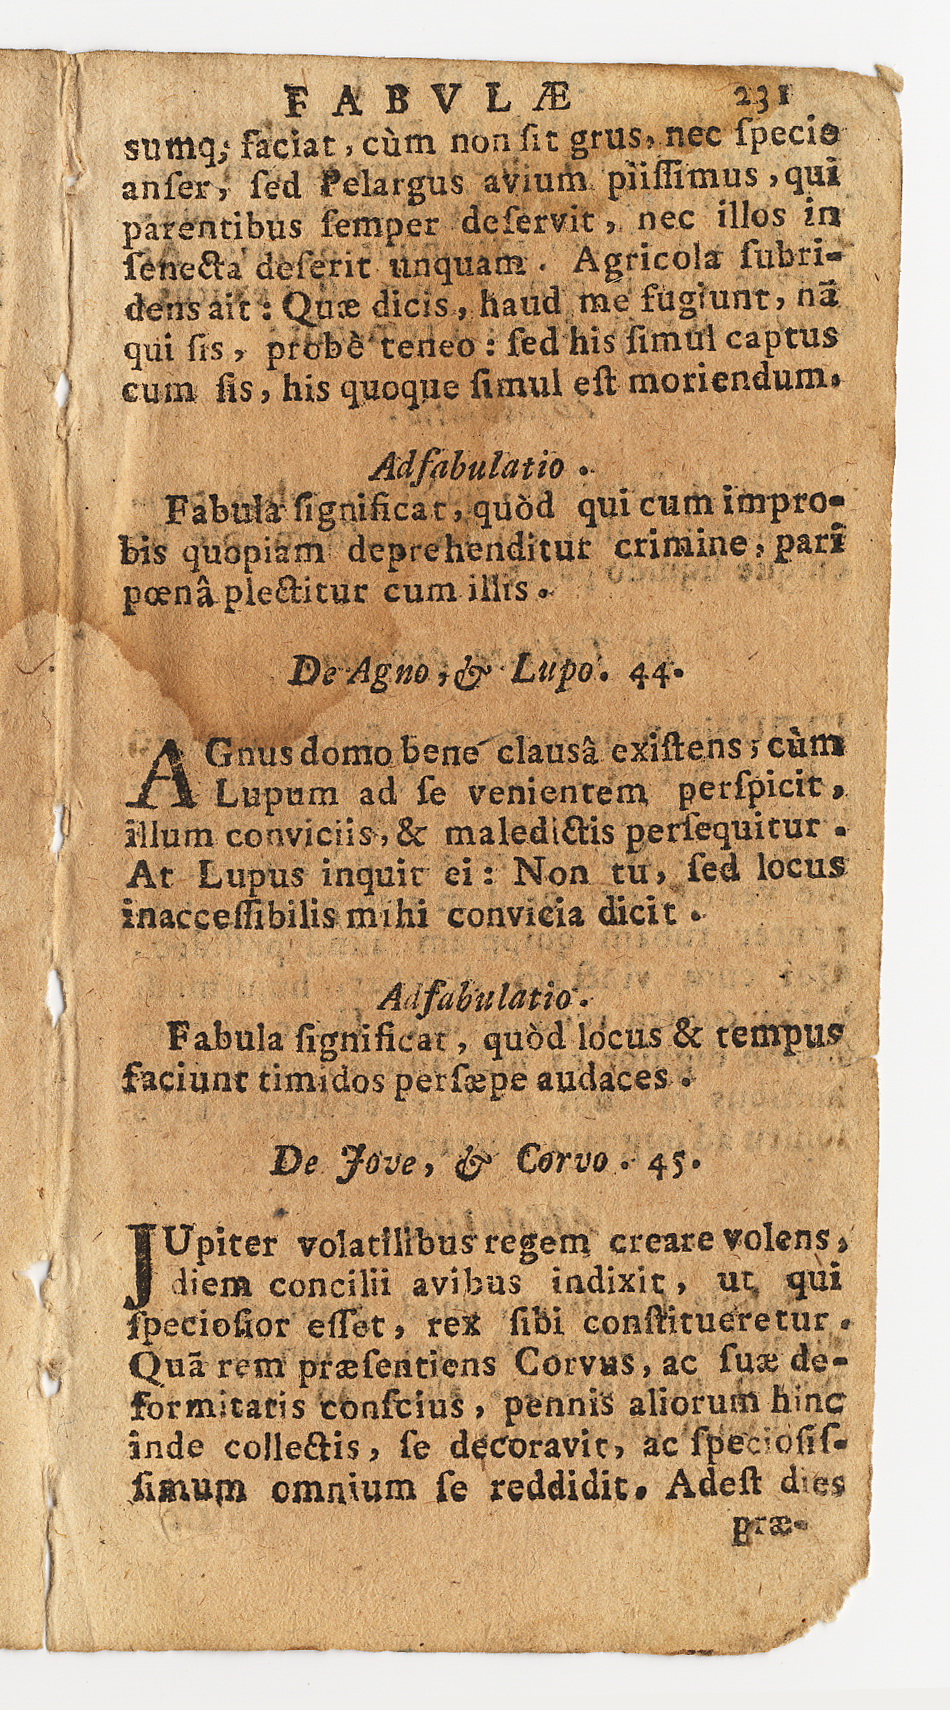 FABVLÆ 231
sumq; faciat, cùm non ſit grus, nec ſpecie
anſer, ſed Pelargus avium piiſſimus, qui
parentibus ſemper deſervit, nec illos in
ſenecta deſerit unquam. Agricola ſubri-
dens ait: Quæ dicis, haud me fugiunt, nã
qui ſis, probè teneo: ſed his ſimul captus
cum ſis, his quoque ſimul eſt moriendum.
Adfabulatio.
Fabula ſignificat, quòd qui cum impro-
bis quopiam deprehenditur crimine, pari
pœnâ plectitur cum illis.
De Agno, & Lupo. 44.
AGnus domo bene clausâ exiſtens, cùm
Lupum ad ſe venientem perſpicit,
illum conviciis, & maledictis perſequitur.
At Lupus inquit ei: Non tu, ſed locus
inacceſſibilis mihi convicia dicit.
Adfabulatio.
Fabula ſignificat, quòd locus & tempus
faciunt timidos perſæpe audaces.
De Jove, & Corvo. 45.
JUpiter volatilibus regem creare volens,
diem concilii avibus indixit, ut qui
ſpecioſior eſſet, rex ſibi conſtitueretur.
Quã rem præſentiens Corvus, ac ſuæ de-
formitatis conſcius, pennis aliorum hinc
inde collectis, ſe decoravit, ac ſpecioſiſ-
ſimum omnium ſe reddidit. Adeſt dies
præ-